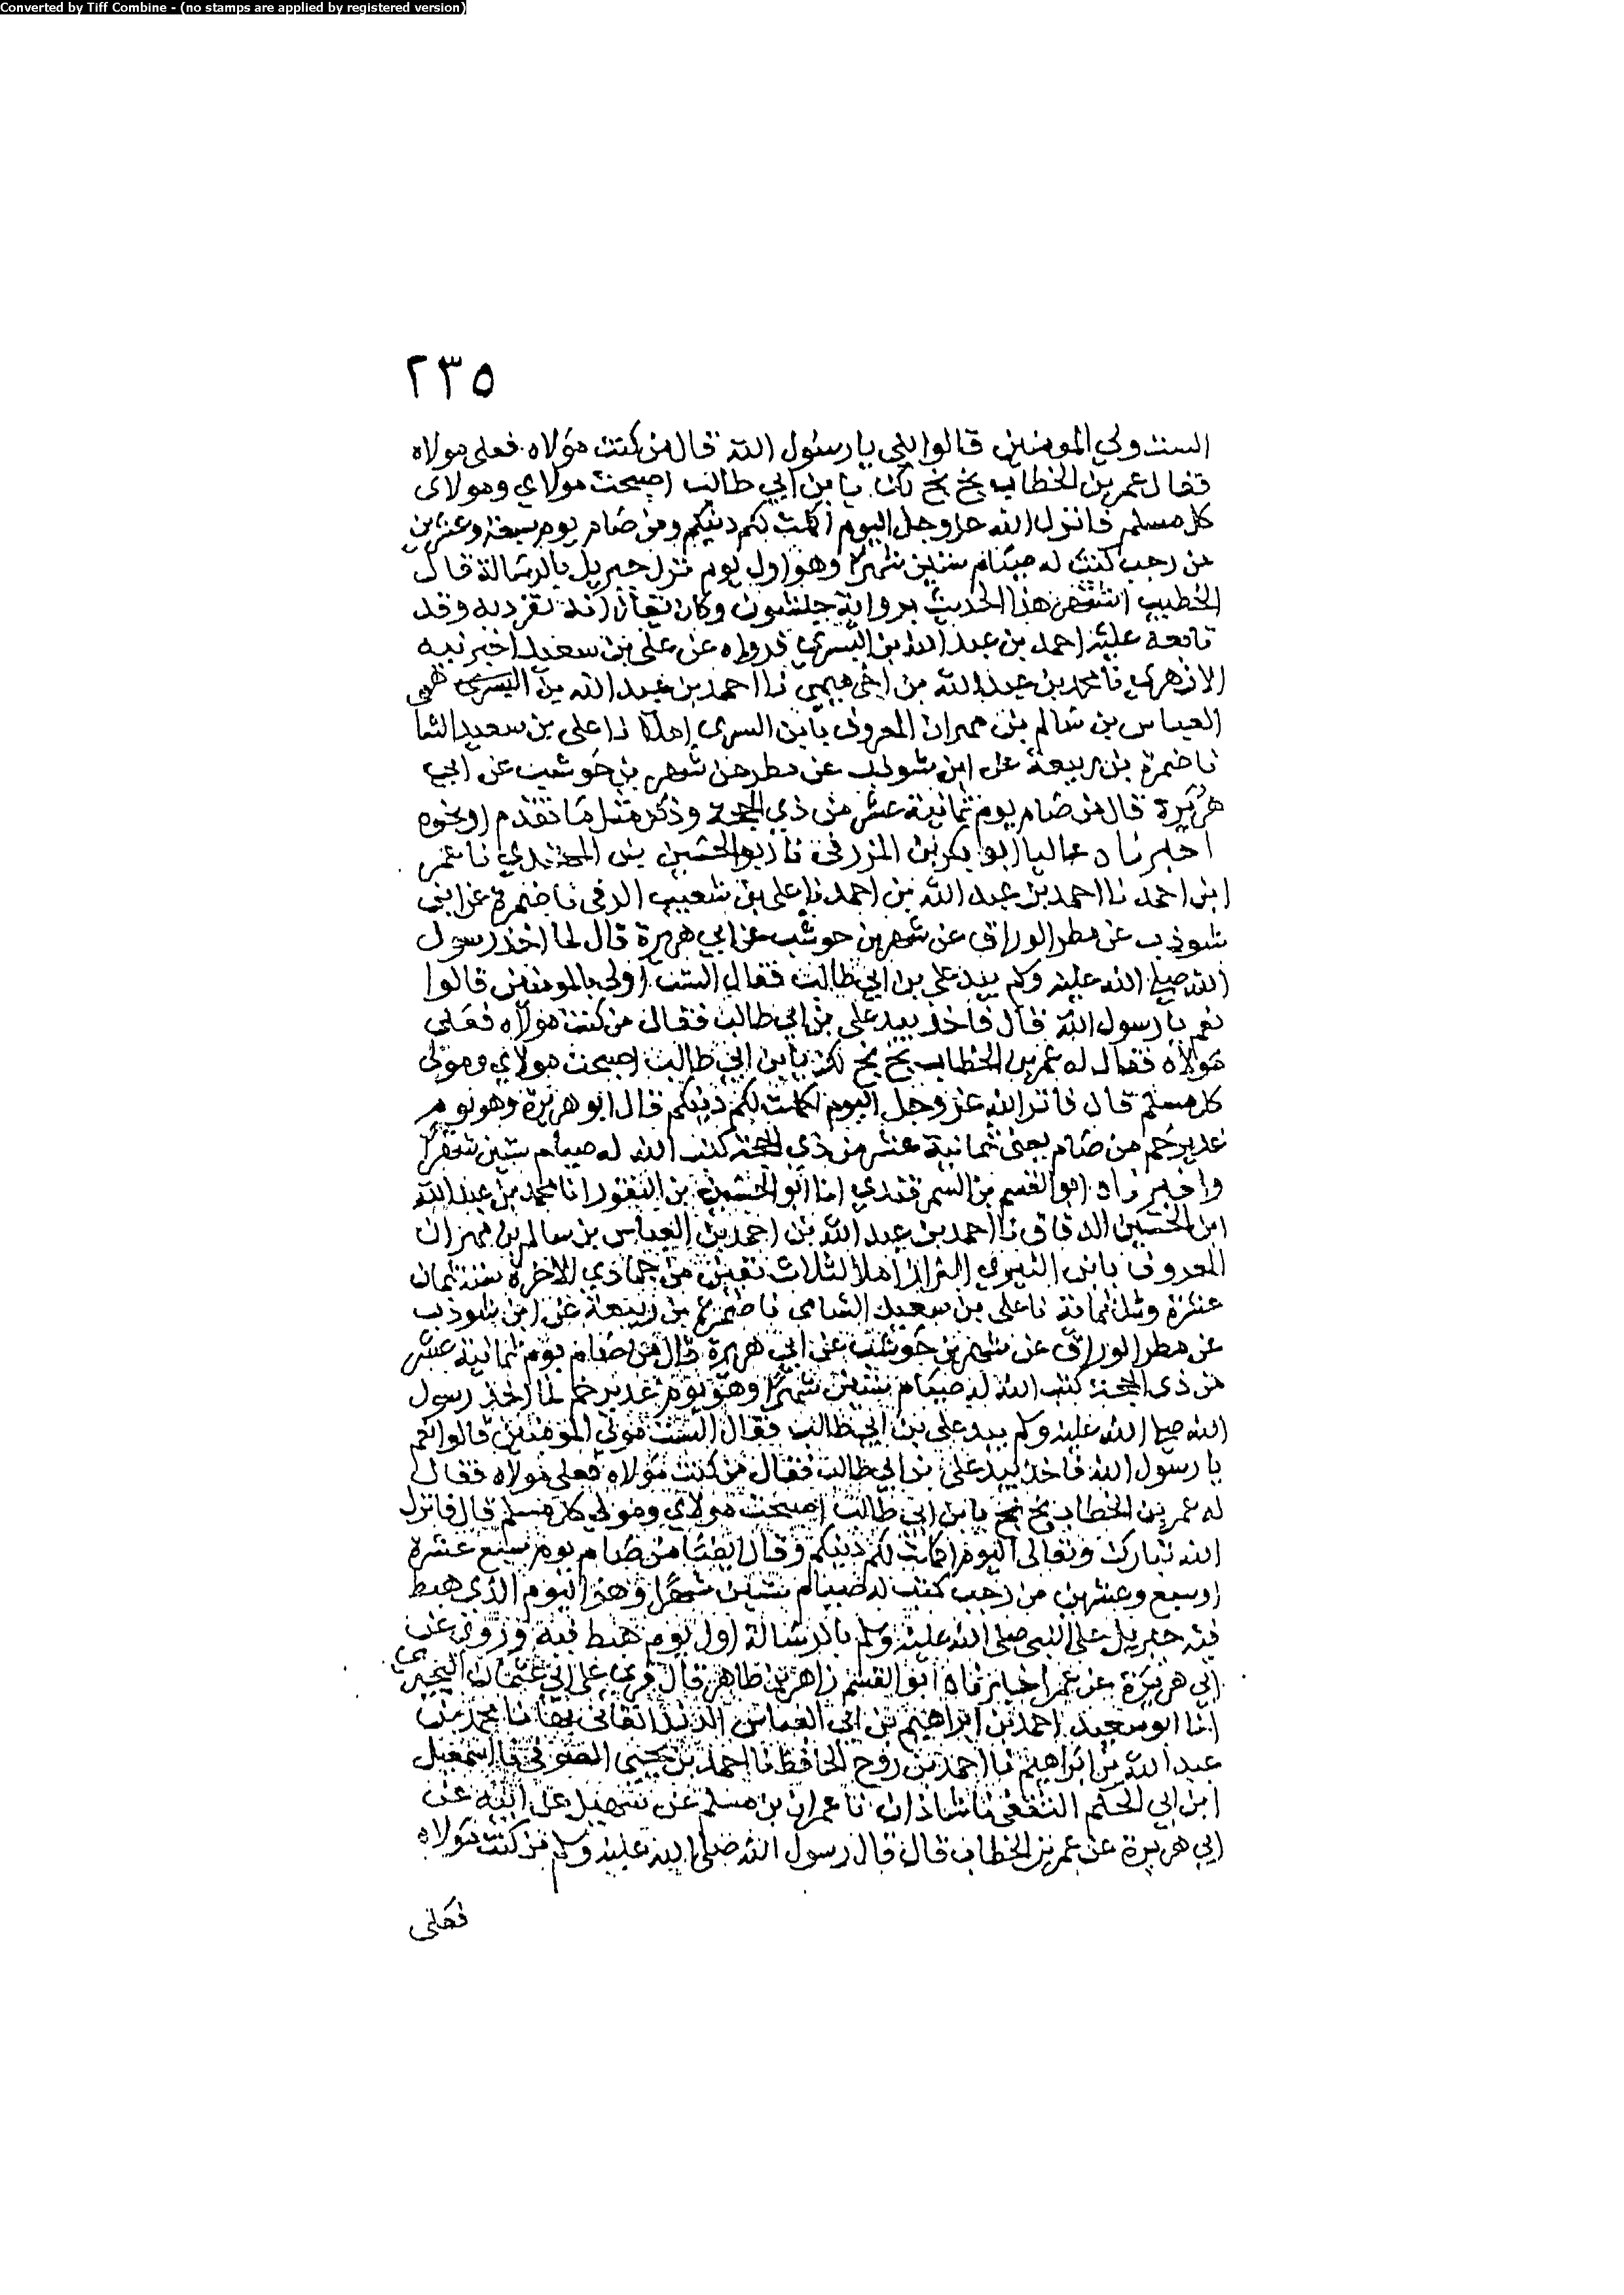 Converted by Tiff Combine - (no stamps are applied by registered version)
٢٣٥
الست ولي المومنين قالوا بلى يا رسول الله قال من كنت مولاه فعلي مولاه
فقال عمر بن الخطاب بخ بخ لك يا بن ابي طالب اصبحت مولاي ومولاى
كل مسلم فانزل الله عز وجل اليوم اكملت لكم دينكم ومن صام يوم سبعة وعشرين
من رجب كتب له صيام ستين شهرا وهو اول يوم نزل جبريل بالرسالة قال
الخطيب اشتهر هذا الحديث برواية حبشون وكان يقال انه تفرد به وقد
تابعه عليه احمد بن عبد الله بن النيري فرواه عن علي بن سعيد اخبرنيه
الازهري نا محمد بن عبد الله بن اخي ميمي نا احمد بن عبد الله بن
العباس بن سالم بن مهران المعروف بابن النيري املا نا علي بن سعيد الشا
نا ضمرة بن ربيعة عن ابن شوذب عن مطر عن شهر بن حوشب عن ابي
هريرة قال من صام يوم ثمانية عشر من ذي الحجة وذكر مثل ما تقدم او نحوه
اخبرناه عاليا ابو بكر بن المزرفي نا ابو الحسين بن المهتدي نا عمر
ابن احمد نا احمد بن عبد الله بن احمد نا علي بن شعيب الرقي نا ضمرة عن ابن
شوذب عن مطر الوراق عن شهر بن حوشب عن ابي هريرة قال لما اخذ رسول
الله صلى الله عليه وسلم بيد علي بن ابي طالب فقال الست اولى بالمومنين قالوا
نعم يا رسول الله قال فاخذ بيد علي بن ابي طالب فقال من كنت مولاه فعلي
مولاه فقال له عمر بن الخطاب بخ بخ لك يا بن ابي طالب اصبحت مولاي ومولى
كل مسلم قال فانزل الله عز وجل اليوم اكملت لكم دينكم قال ابو هريرة وهو يوم
غدير خم من صام يعني ثمانية عشر من ذي الحجة كتب الله له صيام ستين شهرا
واخبرناه ابو القسم بن السمرقندي انا ابو الحسين بن النقور انا محمد بن عبد الله
ابن الحسين الدقاق نا احمد بن عبد الله بن احمد بن العباس بن سالم بن مهران
المعروف بابن النيري البزاز املا لثلاث بقين من جمادي الاخرة سنة ثمان
عشرة وثلثمائة نا علي بن سعيد الشامي نا ضمرة بن ربيعة عن ابن شوذب
عن مطر الوراق عن شهر بن حوشب عن ابي هريرة قال من صام يوم ثمانية عشر
من ذي الحجة كتب الله له صيام ستين شهرا وهو يوم غدير خم لما اخذ رسول
الله صلى الله عليه وسلم بيد علي بن ابي طالب فقال الست مولى المومنين قالوا نعم
يا رسول الله فاخذ بيد علي بن ابي طالب فقال من كنت مولاه فعلي مولاه فقال
له عمر بن الخطاب بخ بخ يا بن ابي طالب اصبحت مولاي ومولى كل مسلم قال فانزل
الله تبارك وتعالى اليوم اكملت لكم دينكم وقال ايضا من صام يوم سبع عشرة
او سبع وعشرين من رجب كتب له صيام ستين شهرا وهو اليوم الذي هبط
فيه جبريل على النبي صلى الله عليه وسلم بالرسالة اول يوم هبط فيه وروي عن
ابي هريرة عن عمر اخبرناه ابو القسم زاهر بن طاهر قال قرئ على ابي عثمان البحيري
انا ابو سعيد احمد بن ابراهيم بن ابي العباس نا محمد بن
عبد الله بن ابراهيم نا احمد بن روح الحافظ نا احمد بن يحيى الصوفي نا اسمعيل
ابن ابي الحكم الثقفي نا شاذان نا عمران بن مسلم عن سهيل عن ابيه عن
ابي هريرة عن عمر بن الخطاب قال قال رسول الله صلى الله عليه وسلم من كنت مولاه
فعلى